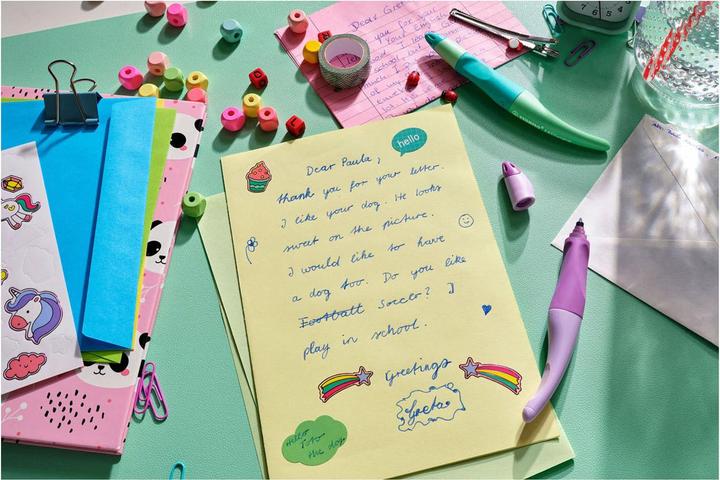 Dear Gret
you for you
Your Engli
hello
Dear Paula,
thank you for your letter.
I like your dog. He looks
sweet on the picture.
I would like to have
a dog too. Do you like
Football Soccer? I
play in school.
Greetings
Greta
Hello
to
the dog
7 6 5 4